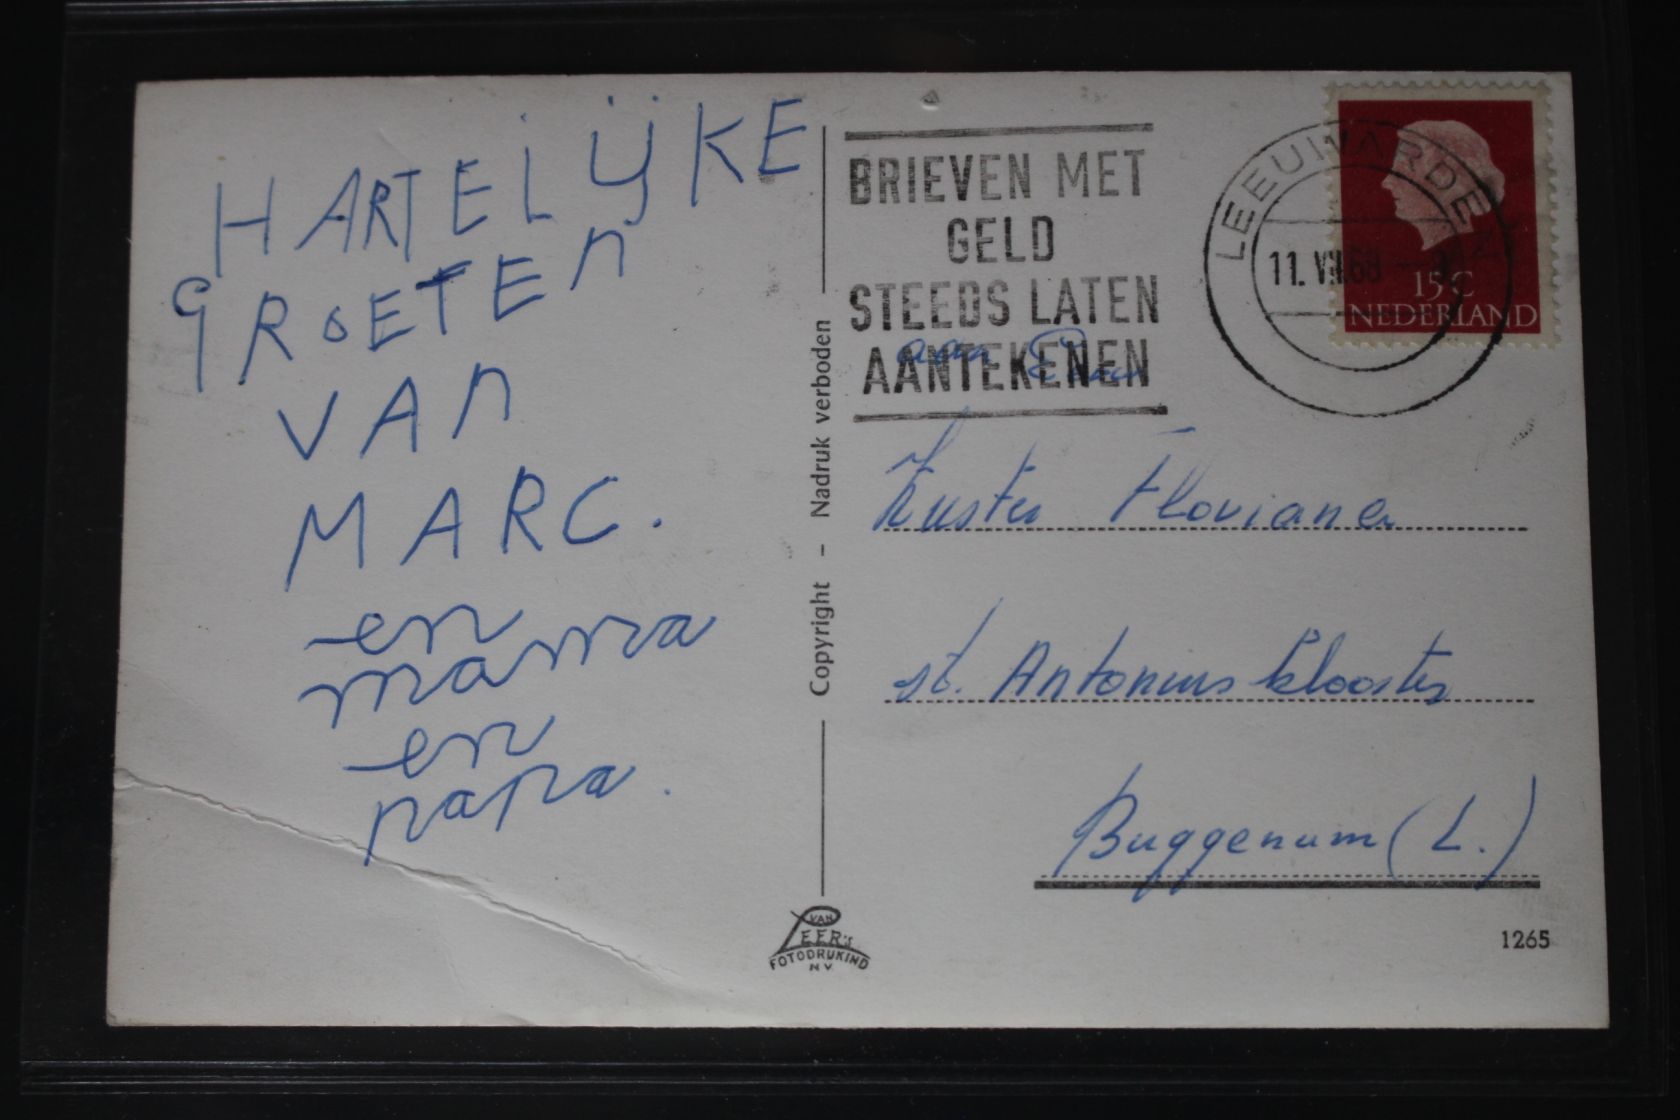 HARTELijKE
GROETEn
VAn
MARC.
en
mama
en
papa.
Copyright - Nadruk verboden
VAN
LEER'S
FOTODRUKIND
N.V.
BRIEVEN MET
GELD
STEEDS LATEN
AANTEKENEN
LEEUWARDEN
11.VII.68
15 C
NEDERLAND
aan
Zuster Floviana
st. Antonius klooster
Buggenum (L.)
1265